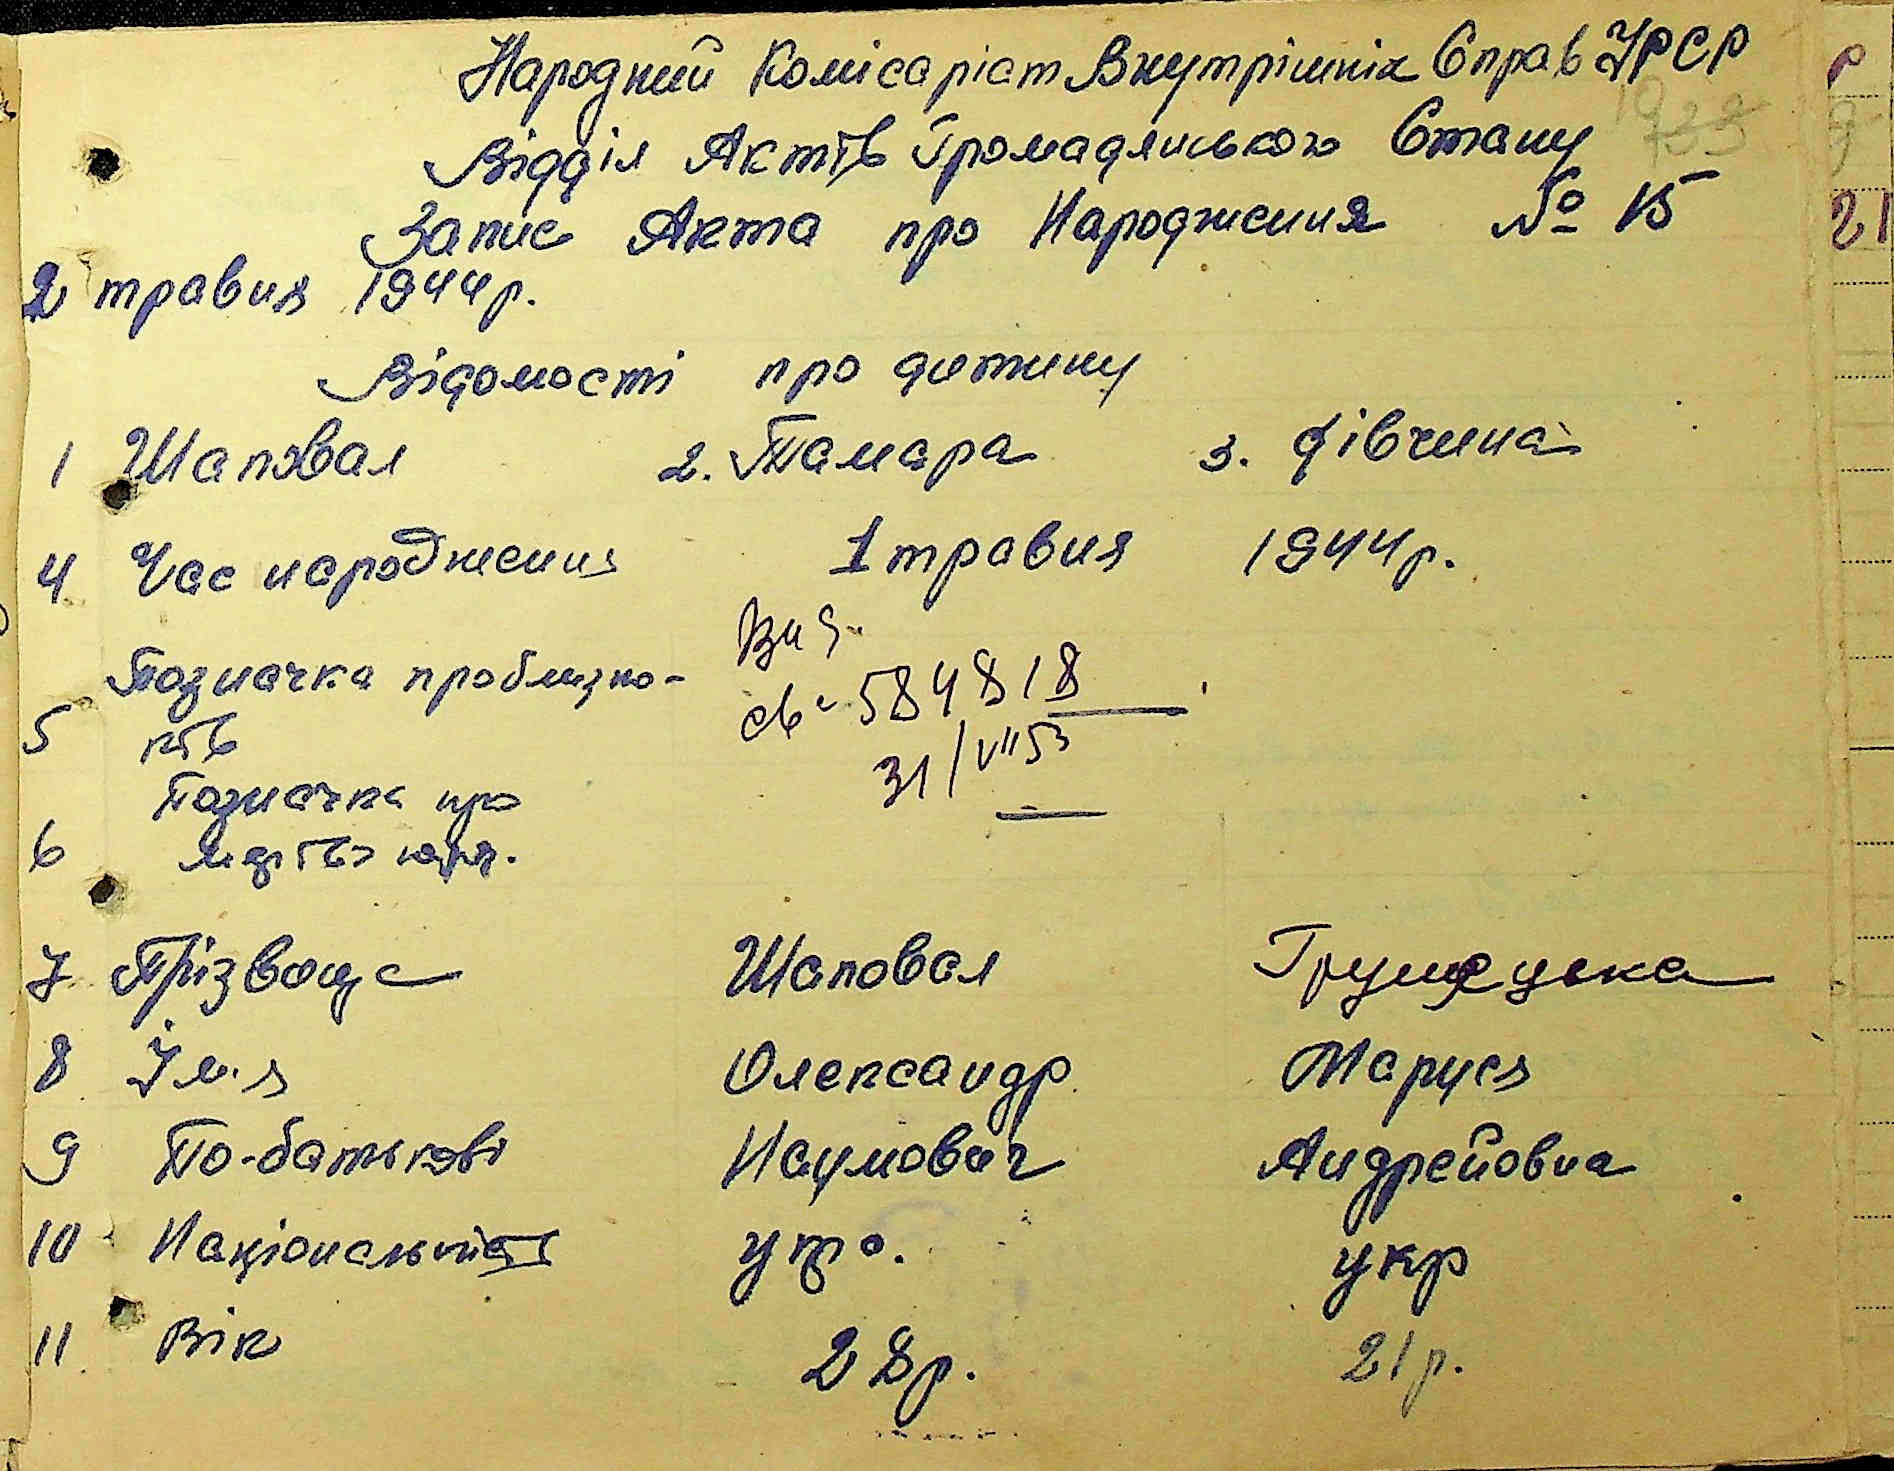 Народний Комісаріат Внутрішніх Справ УРСР
Відділ Актів Громадянського Стану
Запис Акта про Народження № 15
2 травня 1944 р.
Відомості про дитину
1 Шаповал 2. Тамара 3. дівчина
4 Час народження 1 травня 1944 р.
Позначка про близно-
5 ків
Позначка про
6
св 584818
31/VII 53
7 Прізвище Шаповал
8 Ім.я Олександр Маруся
9 По-батькові Наумович Андрейовна
10 Національність укр. укр
11 Вік 28 р. 21 р.